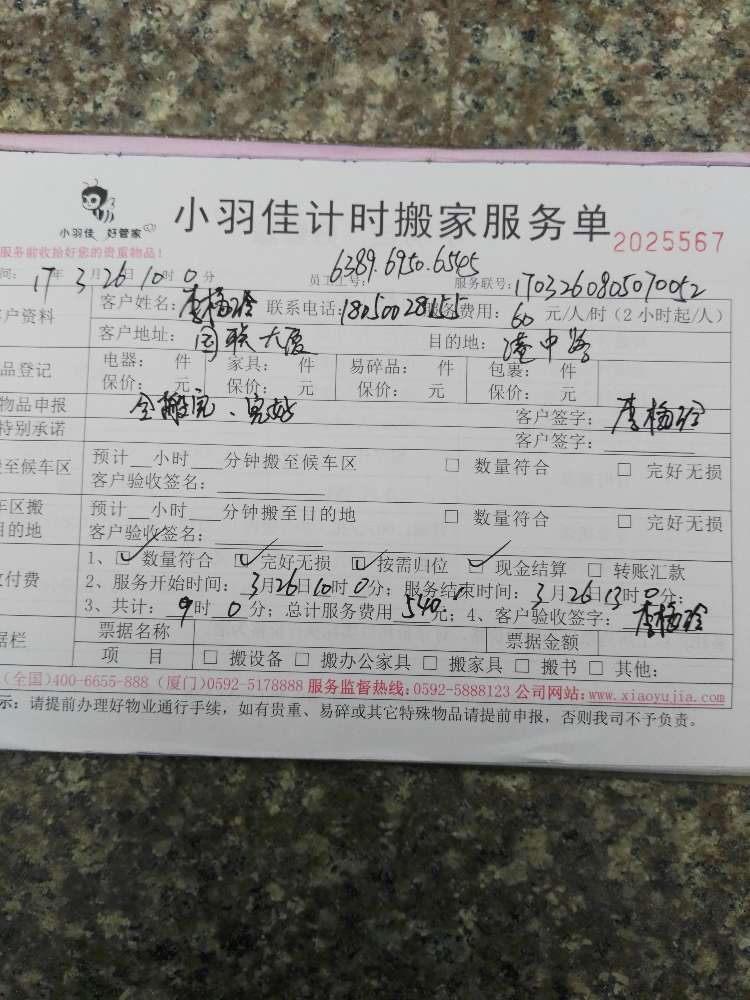 小羽佳计时搬家服务单 2025567
小羽佳 好管家
服务前收拾好您的贵重物品!
间: 17年 3月 26日 10时 0分 员工工号: 6389.6950.6545 服务联号: 1703260805070052
客户资料 客户姓名: 李梅珍 联系电话: 18050028155 服务费用: 60 元/人/时(2小时起/人)
客户地址: 国联大厦 目的地: 港中路
品登记 电器: 件 家具: 件 易碎品: 件 包裹: 件
保价: 元 保价: 元 保价: 元 保价: 元
物品申报 全搬完、完好 客户签字: 李梅珍
特别承诺 客户签字:
至候车区 预计__小时___分钟搬至候车区 □ 数量符合 □ 完好无损
客户验收签名:
车区搬 预计__小时___分钟搬至目的地 □ 数量符合 □ 完好无损
目的地 客户验收签名:
付费 1、☑ 数量符合 ☑ 完好无损 ☑ 按需归位 ☑ 现金结算 □ 转账汇款
2、服务开始时间: 3月26日10时0分; 服务结束时间: 3月26日13时0分;
3、共计: 9时 0分; 总计服务费用 540元; 4、客户验收签字: 李梅珍
据栏 票据名称 票据金额
项 目 □ 搬设备 □ 搬办公家具 □ 搬家具 □ 搬书 □ 其他:
(全国)400-6655-888 (厦门)0592-5178888 服务监督热线:0592-5888123 公司网站:www.xiaoyujia.com
示: 请提前办理好物业通行手续,如有贵重、易碎或其它特殊物品请提前申报,否则我司不予负责。